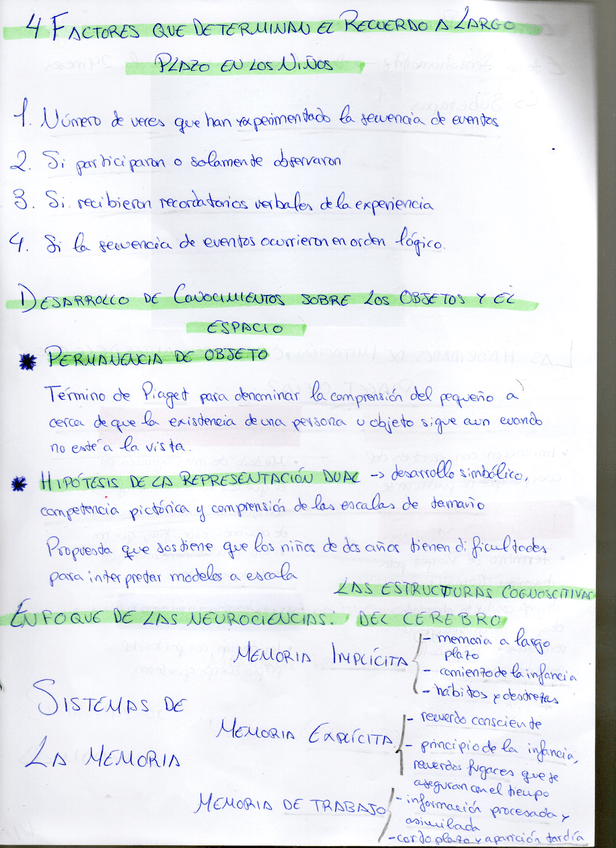 4 FACTORES QUE DETERMINAN EL RECUERDO A LARGO
PLAZO EN LOS NIÑOS
1. Número de veces que han experimentado la secuencia de eventos
2. Si participaron o solamente observaron
3. Si recibieron recordatorios verbales de la experiencia
4. Si la secuencia de eventos ocurrieron en orden lógico.
DESARROLLO DE CONOCIMIENTOS SOBRE LOS OBJETOS Y EL
ESPACIO
* PERMANENCIA DE OBJETO
Término de Piaget para denominar la comprensión del pequeño a
cerca de que la existencia de una persona u objeto sigue aun cuando
no esté a la vista.
* HIPÓTESIS DE LA REPRESENTACIÓN DUAL -> desarrollo simbólico,
competencia pictórica y comprensión de las escalas de tamaño
Propuesta que sostiene que los niños de dos años tienen dificultades
para interpretar modelos a escala
ENFOQUE DE LAS NEUROCIENCIAS: LAS ESTRUCTURAS COGNOSCITIVAS
DEL CEREBRO
SISTEMAS DE
LA MEMORIA
MEMORIA IMPLÍCITA
- memoria a largo
plazo
- comienzo de la infancia
- hábitos y destrezas
MEMORIA EXPLÍCITA
- recuerdo consciente
- principio de la infancia,
recuerdos fugaces que se
aseguran con el tiempo
MEMORIA DE TRABAJO
- información procesada y
asimilada
- corto plazo y aparición tardía